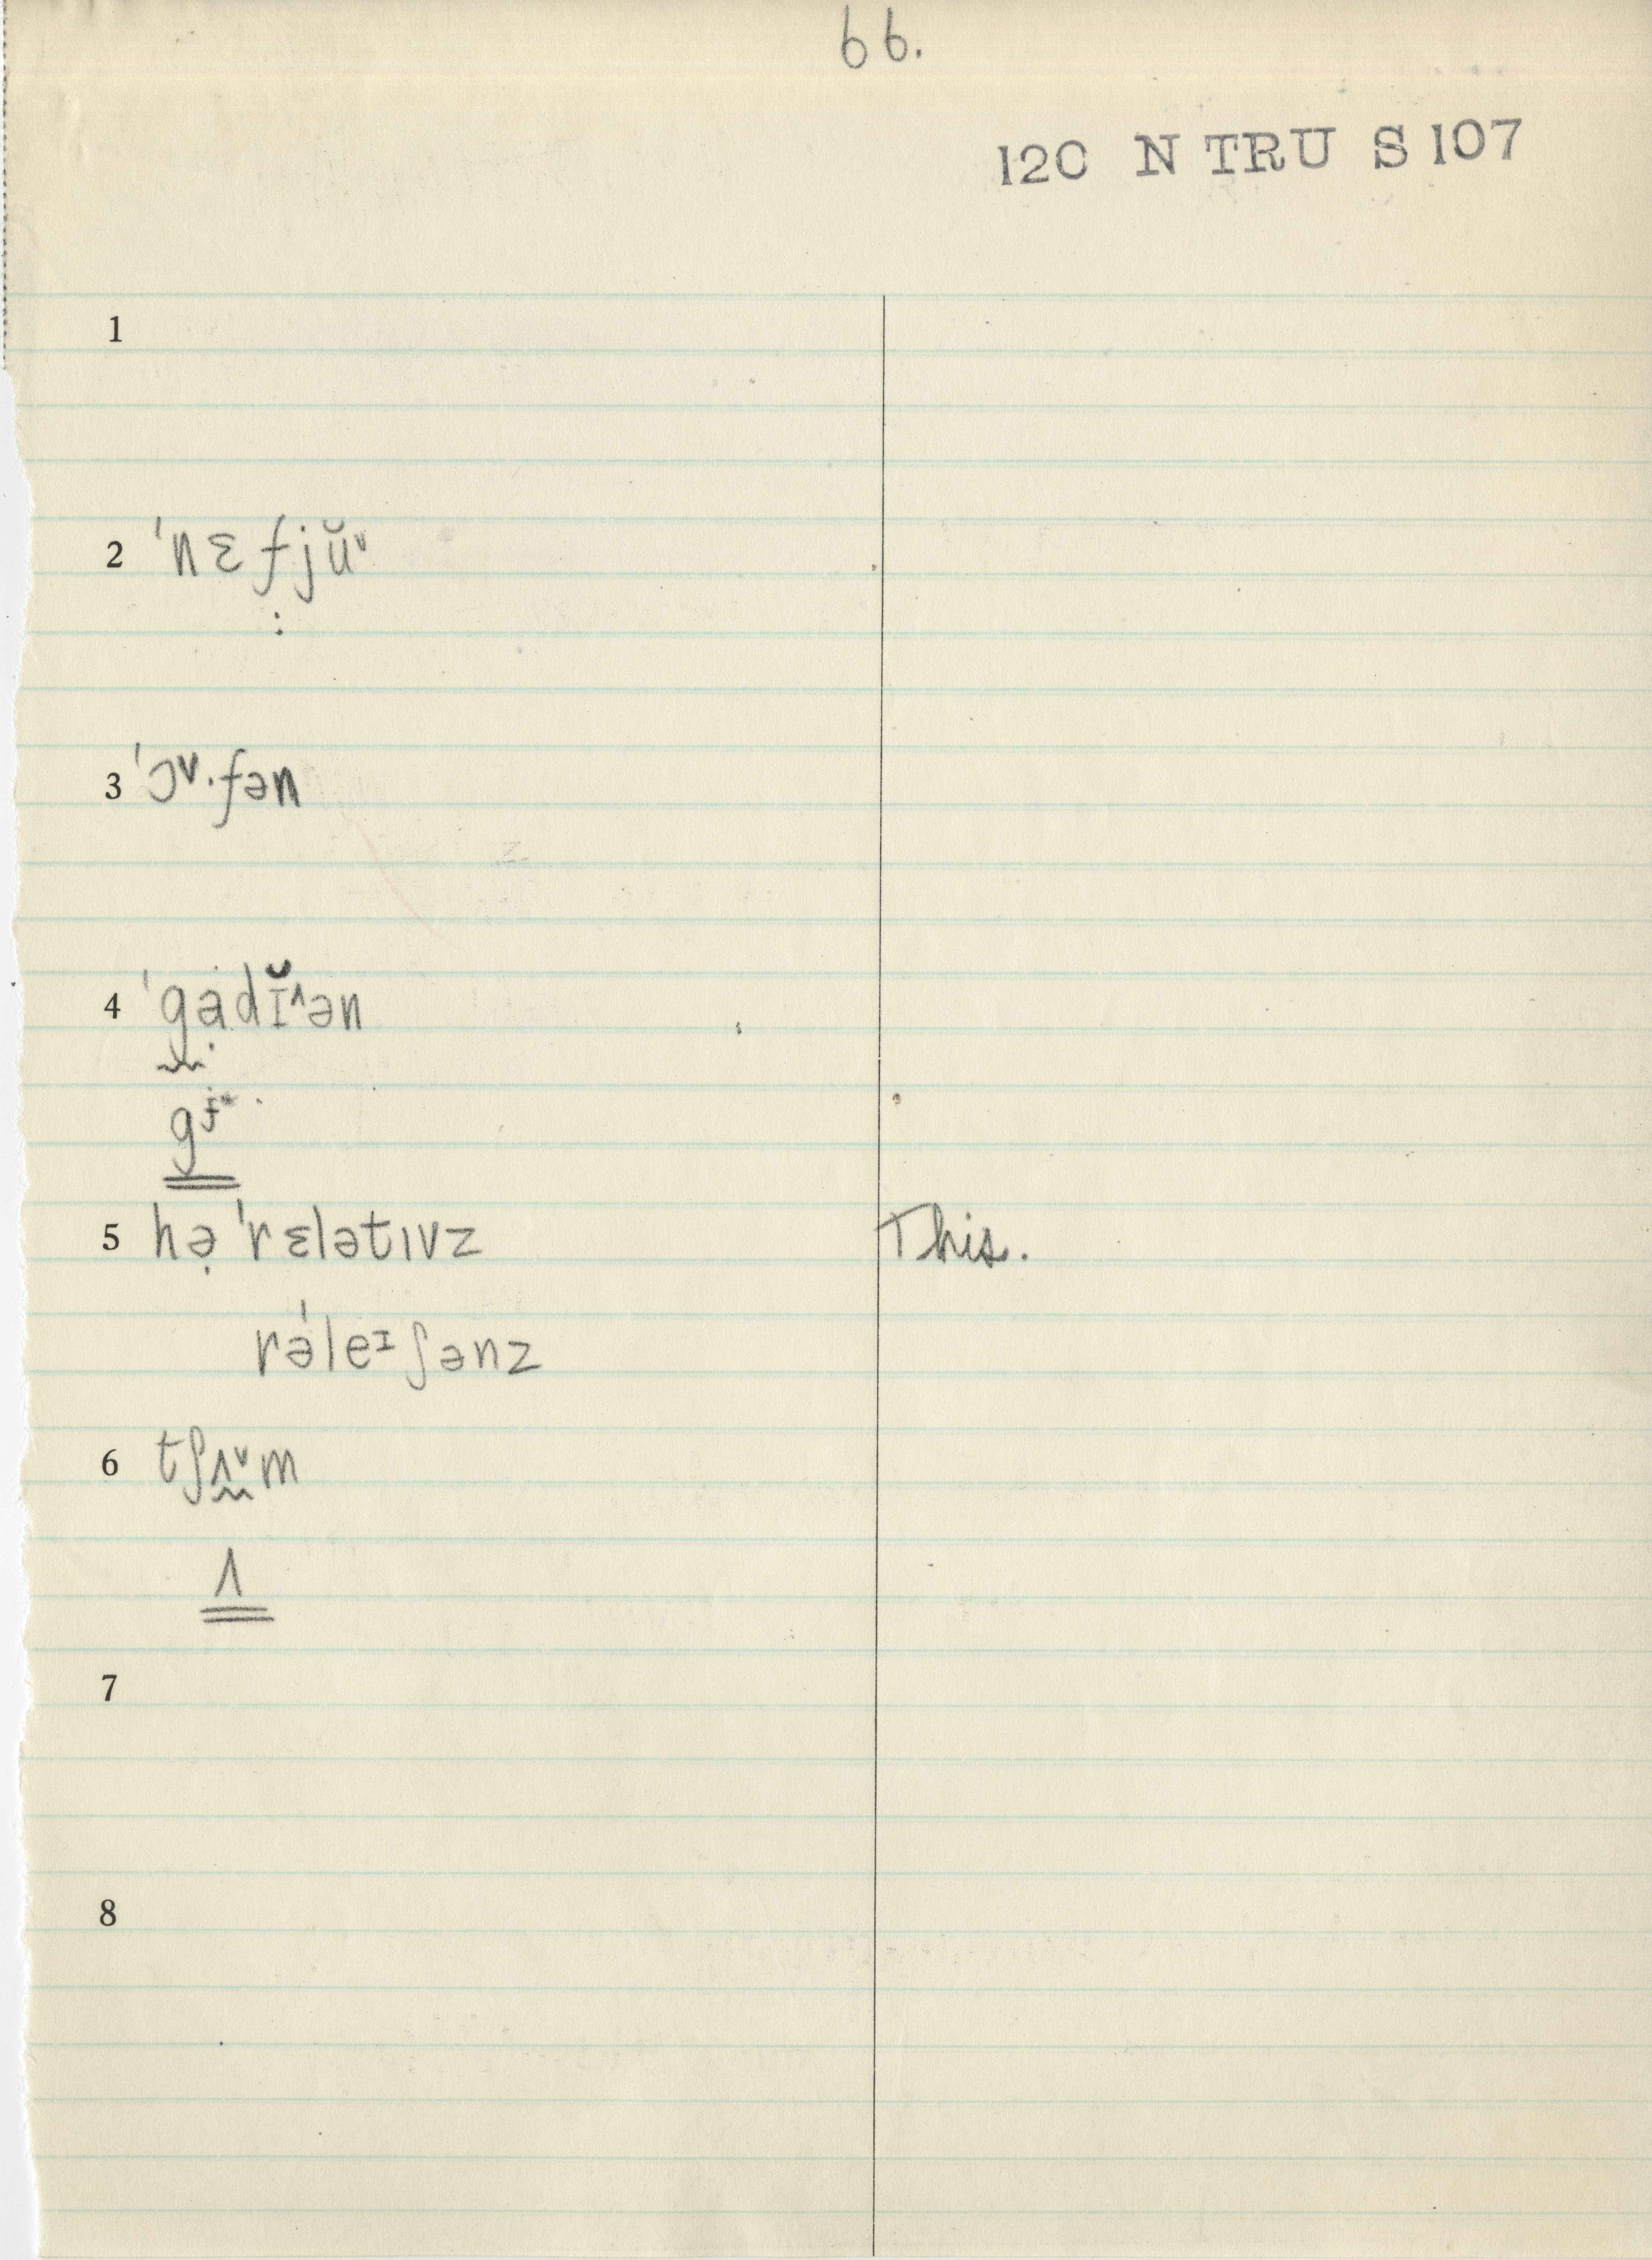 66.
120 N TRU S 107
1
2 ˈnɛfjŭᵛ
:
3 ˈɔᵛ·fən
4 ˈgạdɪ̆^ən
gʲ
5 hə̣ ˈrɛlətɪvz This.
rəˈleᶦʃənz
6 tʃʌᵛm
ʌ
7
8